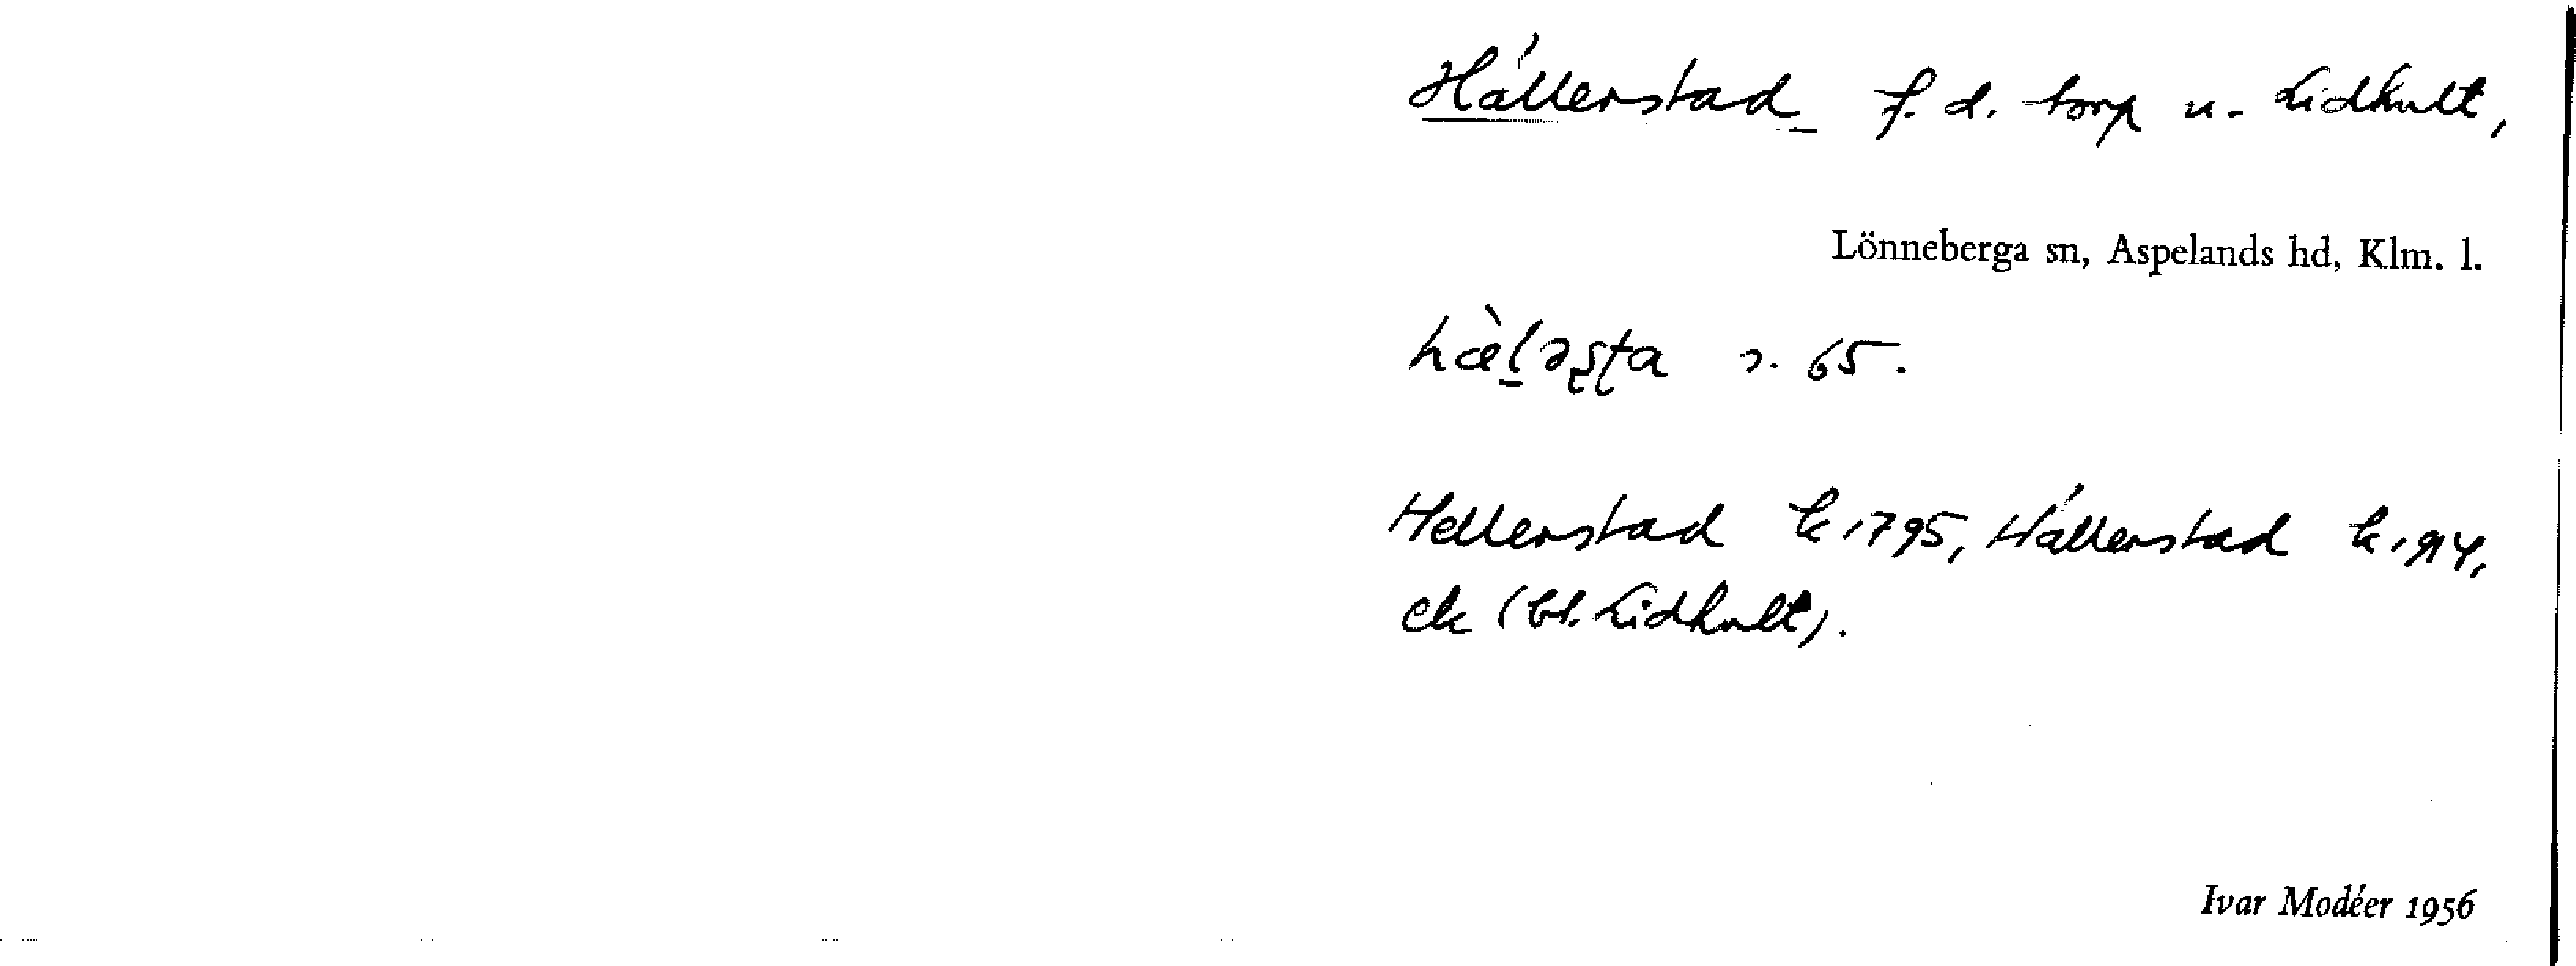 Hällerstad f. d. torp u. Lidhult,
Lönneberga sn, Aspelands hd, Klm. l.
hæ̀l̠əʂʈa s. 65.
Hellerstad k 1795, Hällerstad k 1914,
ek (bl. Lidhult).
Ivar Modéer 1956